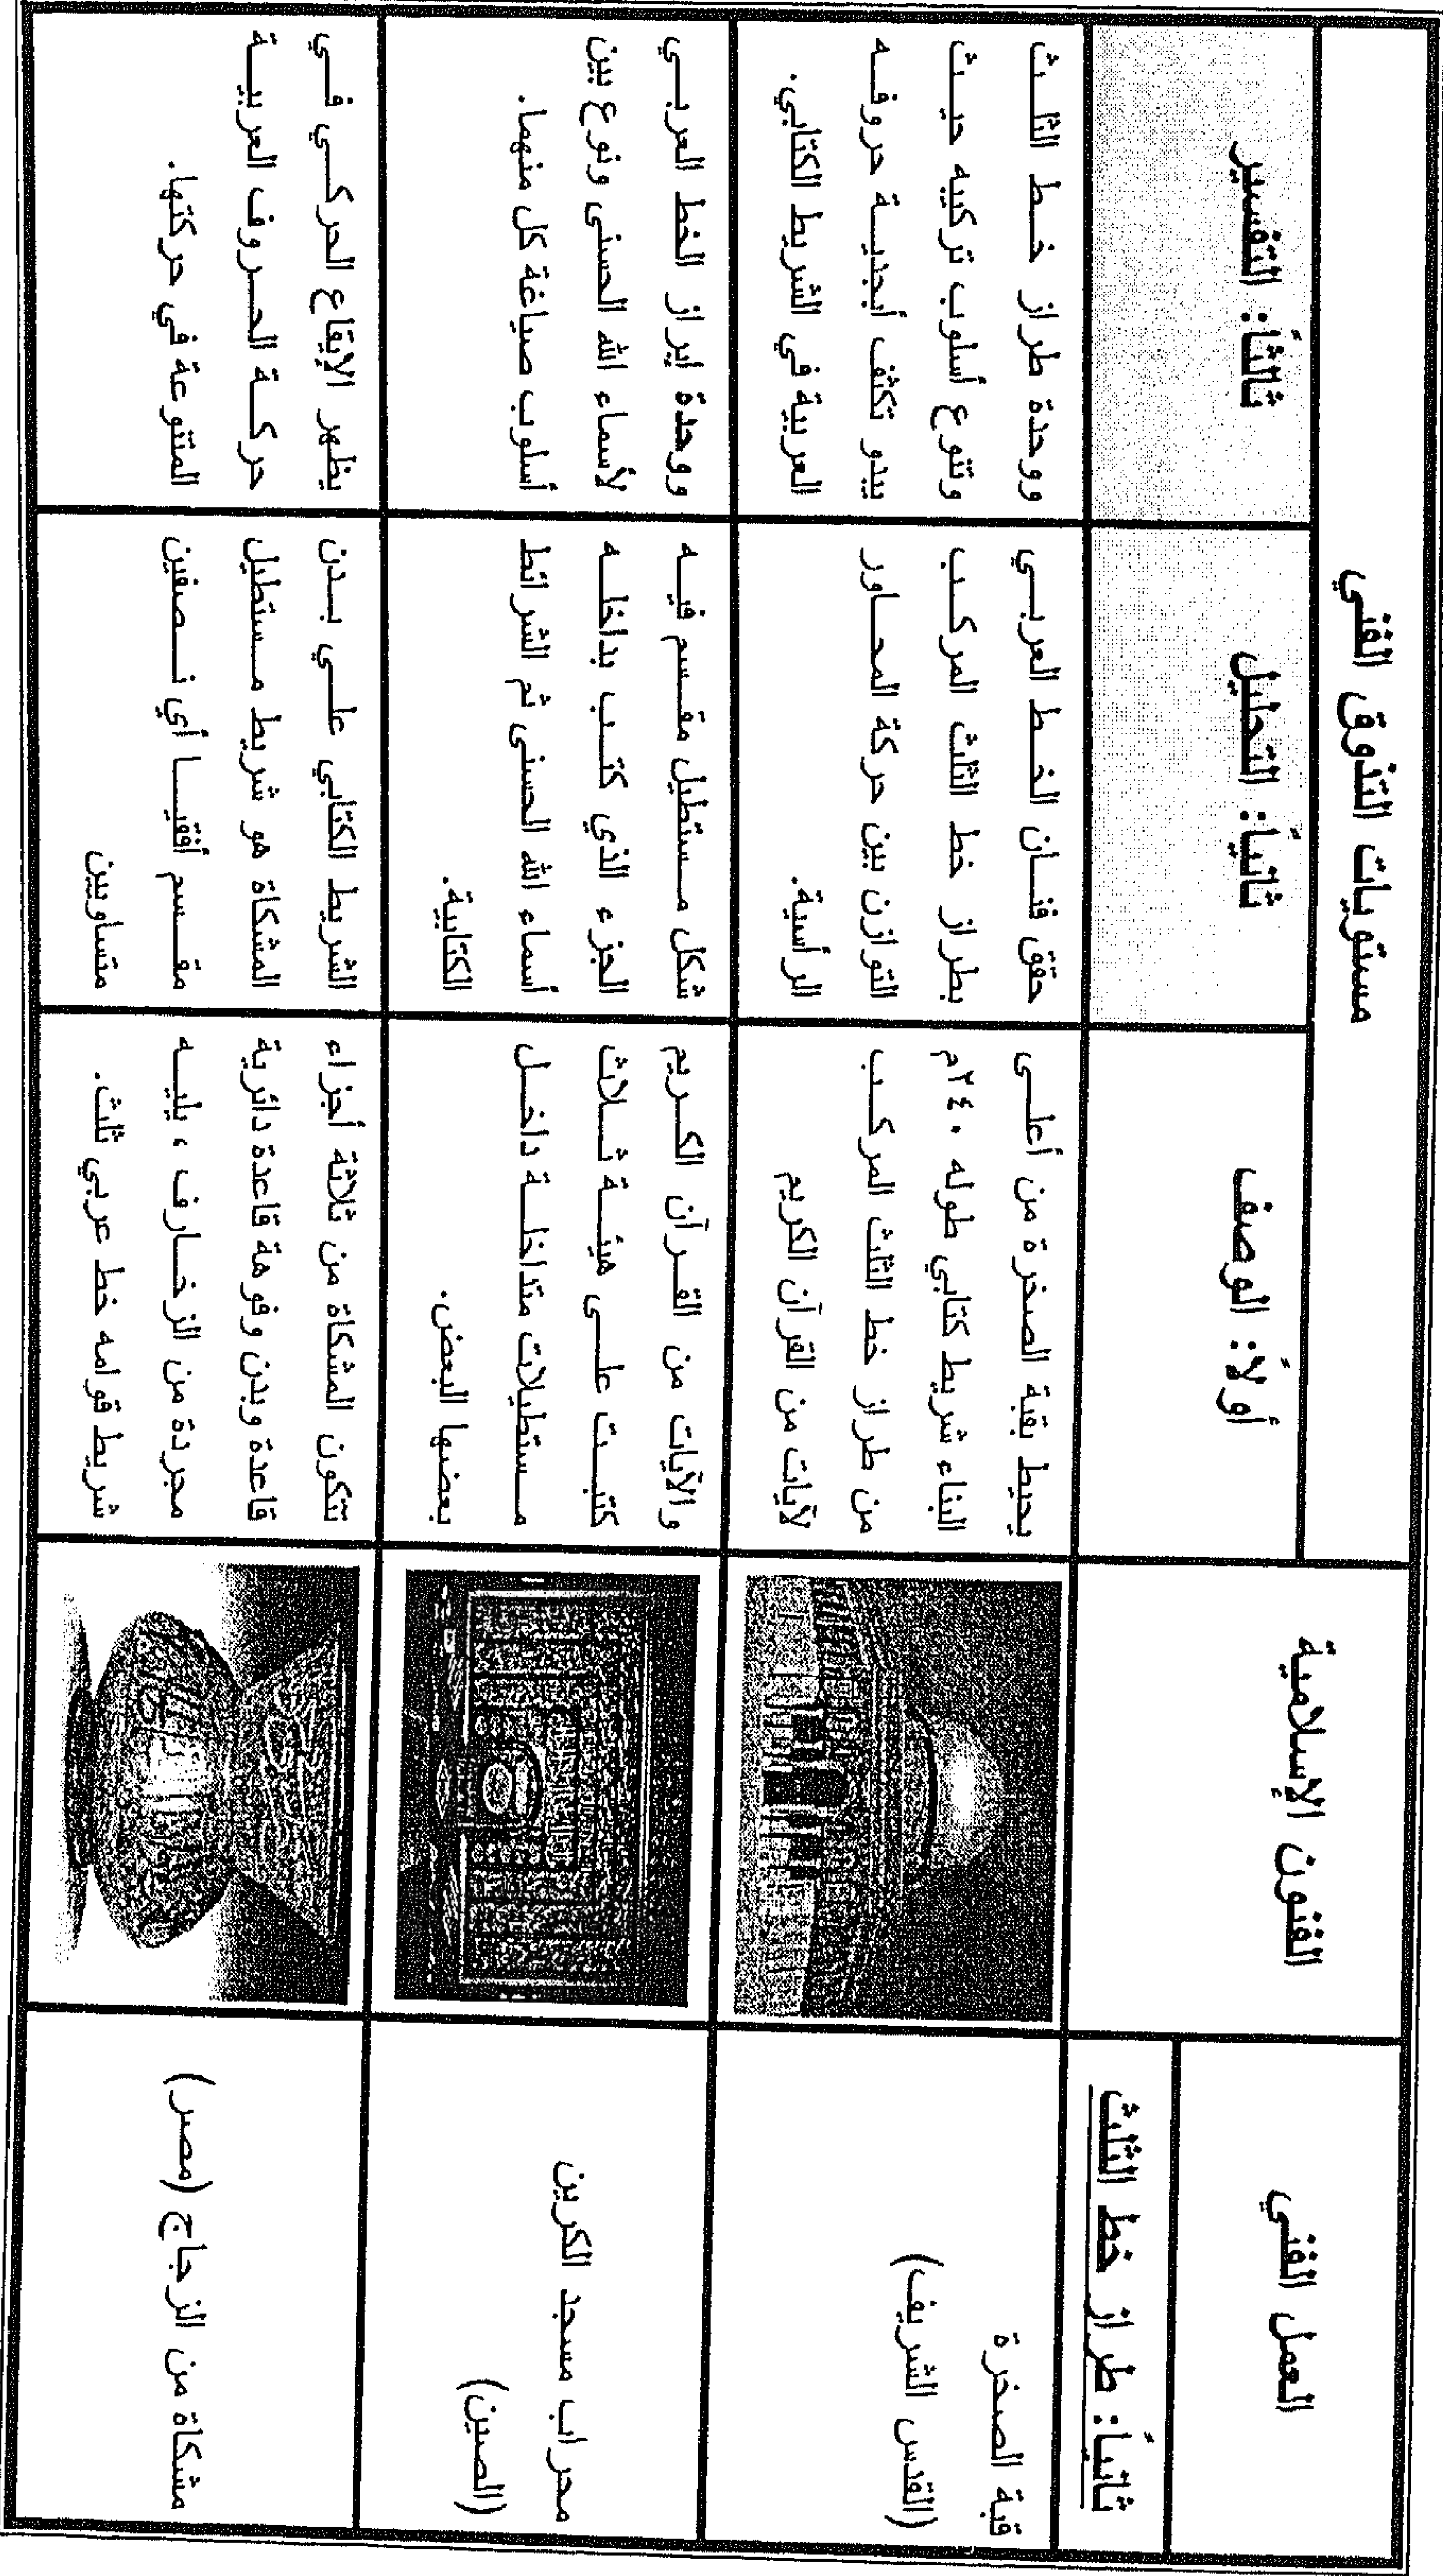 العمل الفني
الفنون الإسلامية
مستويات التذوق الفني
أولاً: الوصف
ثانياً: التحليل
ثالثاً: التفسير
ثانياً: طراز خط الثلث
قبة الصخرة
(القدس الشريف)
يحيط بقبة الصخرة من أعلى
البناء شريط كتابي طوله ٢٤٠م
من طراز خط الثلث المركب
لآيات من القرآن الكريم
حقق فنان الخط العربي
بطراز خط الثلث المركب
التوازن بين حركة المحاور
الرأسية.
ووحدة طراز خط الثلث
وتنوع أسلوب تركيبه حيث
يبدو تكثف أبجدية حروفه
العربية في الشريط الكتابي.
محراب مسجد الكرين
(الصين)
والآيات من القرآن الكريم
كتبت على هيئة ثلاث
مستطيلات متداخلة داخل
بعضها البعض.
شكل مستطيل مقسم فيه
الجزء الذي كتب بداخله
أسماء الله الحسنى ثم الشرائط
الكتابية.
ووحدة إبراز الخط العربي
لأسماء الله الحسنى ونوع بين
أسلوب صياغة كل منهما.
مشكاة من الزجاج (مصر)
تتكون المشكاة من ثلاثة أجزاء
قاعدة وبدن وفوهة قاعدة دائرية
مجردة من الزخارف ، يليه
شريط قوامه خط عربي ثلث.
الشريط الكتابي على بدن
المشكاة هو شريط مستطيل
مقسم أفقيا أي نصفين
متساويين
يظهر الإيقاع الحركي في
حركة الحروف العربية
المتنوعة في حركتها.